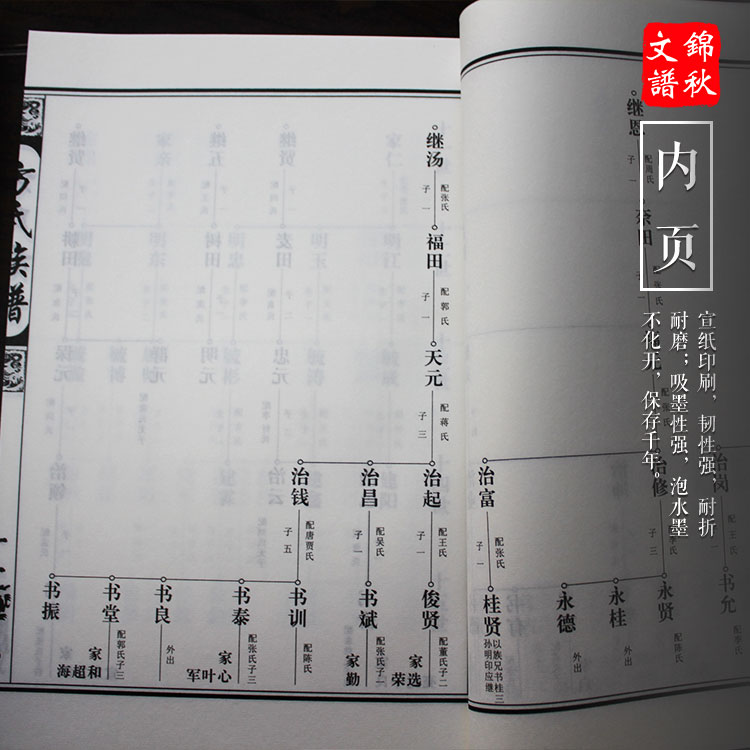 錦秋
文譜
内页
宣纸印刷，韧性强，耐折
耐磨；吸墨性强，泡水墨
不化开，保存千年。
继恩
子一
治岗
书允
治修
子三
永贤
外出
永桂
永德
治富
配张氏
子一
桂贤
以族兄书桂三
孙明印应继
继汤
配张氏
子一
福田
配郭氏
子一
天元
配蒋氏
子三
治起
配王氏
子一
俊贤
配董氏子二
家
选荣
治昌
配吴氏
子一
书斌
配张氏子一
家勤
治钱
配唐贾氏
子五
书训
配陈氏
书泰
配张氏子三
家
心叶军
书良
外出
书堂
配郭氏子三
家
和超海
书振
方氏族谱